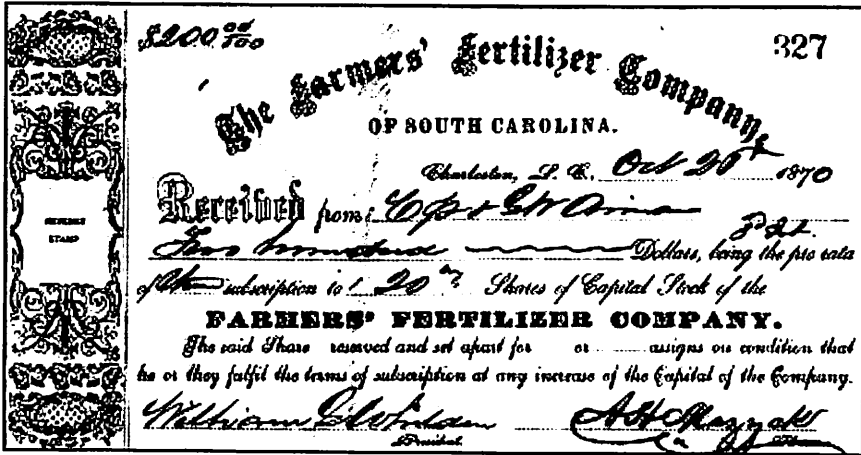 $200 00/100
327
The Farmers' Fertilizer Company,
OF SOUTH CAROLINA.
Charleston, S. C. Oct 20th 1870
Received from C P & G W
Two hundred Dollars, being the pro rata
of subscription to 20 Shares of Capital Stock of the
FARMERS' FERTILIZER COMPANY.
The said Share reserved and set apart for or assigns on condition that
he or they fulfil the terms of subscription at any increase of the Capital of the Company.
William G Whilden
A H Mazyck
President.
REVENUE
STAMP